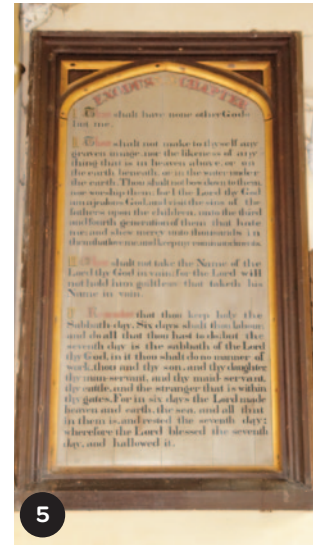 EXODUS CHAPTER
I. Thou shalt have none other Gods
but me.
II. Thou shalt not make to thyself any
graven image, nor the likeness of any
thing that is in heaven above, or in
the earth beneath, or in the water under
the earth. Thou shalt not bow down to them,
nor worship them: for I the Lord thy God
am a jealous God, and visit the sins of the
fathers upon the children, unto the third
and fourth generation of them that hate
me, and shew mercy unto thousands in
them that love me and keep my commandments.
III. Thou shalt not take the Name of the
Lord thy God in vain: for the Lord will
not hold him guiltless that taketh his
Name in vain.
Remember that thou keep holy the
Sabbath day. Six days shalt thou labour,
and do all that thou hast to do; but the
seventh day is the sabbath of the Lord
thy God, in it thou shalt do no manner of
work, thou and thy son, and thy daughter,
thy man servant, and thy maid servant,
thy cattle, and the stranger that is within
thy gates. For in six days the Lord made
heaven and earth, the sea, and all that
in them is, and rested the seventh day;
wherefore the Lord blessed the seventh
day, and hallowed it.
5